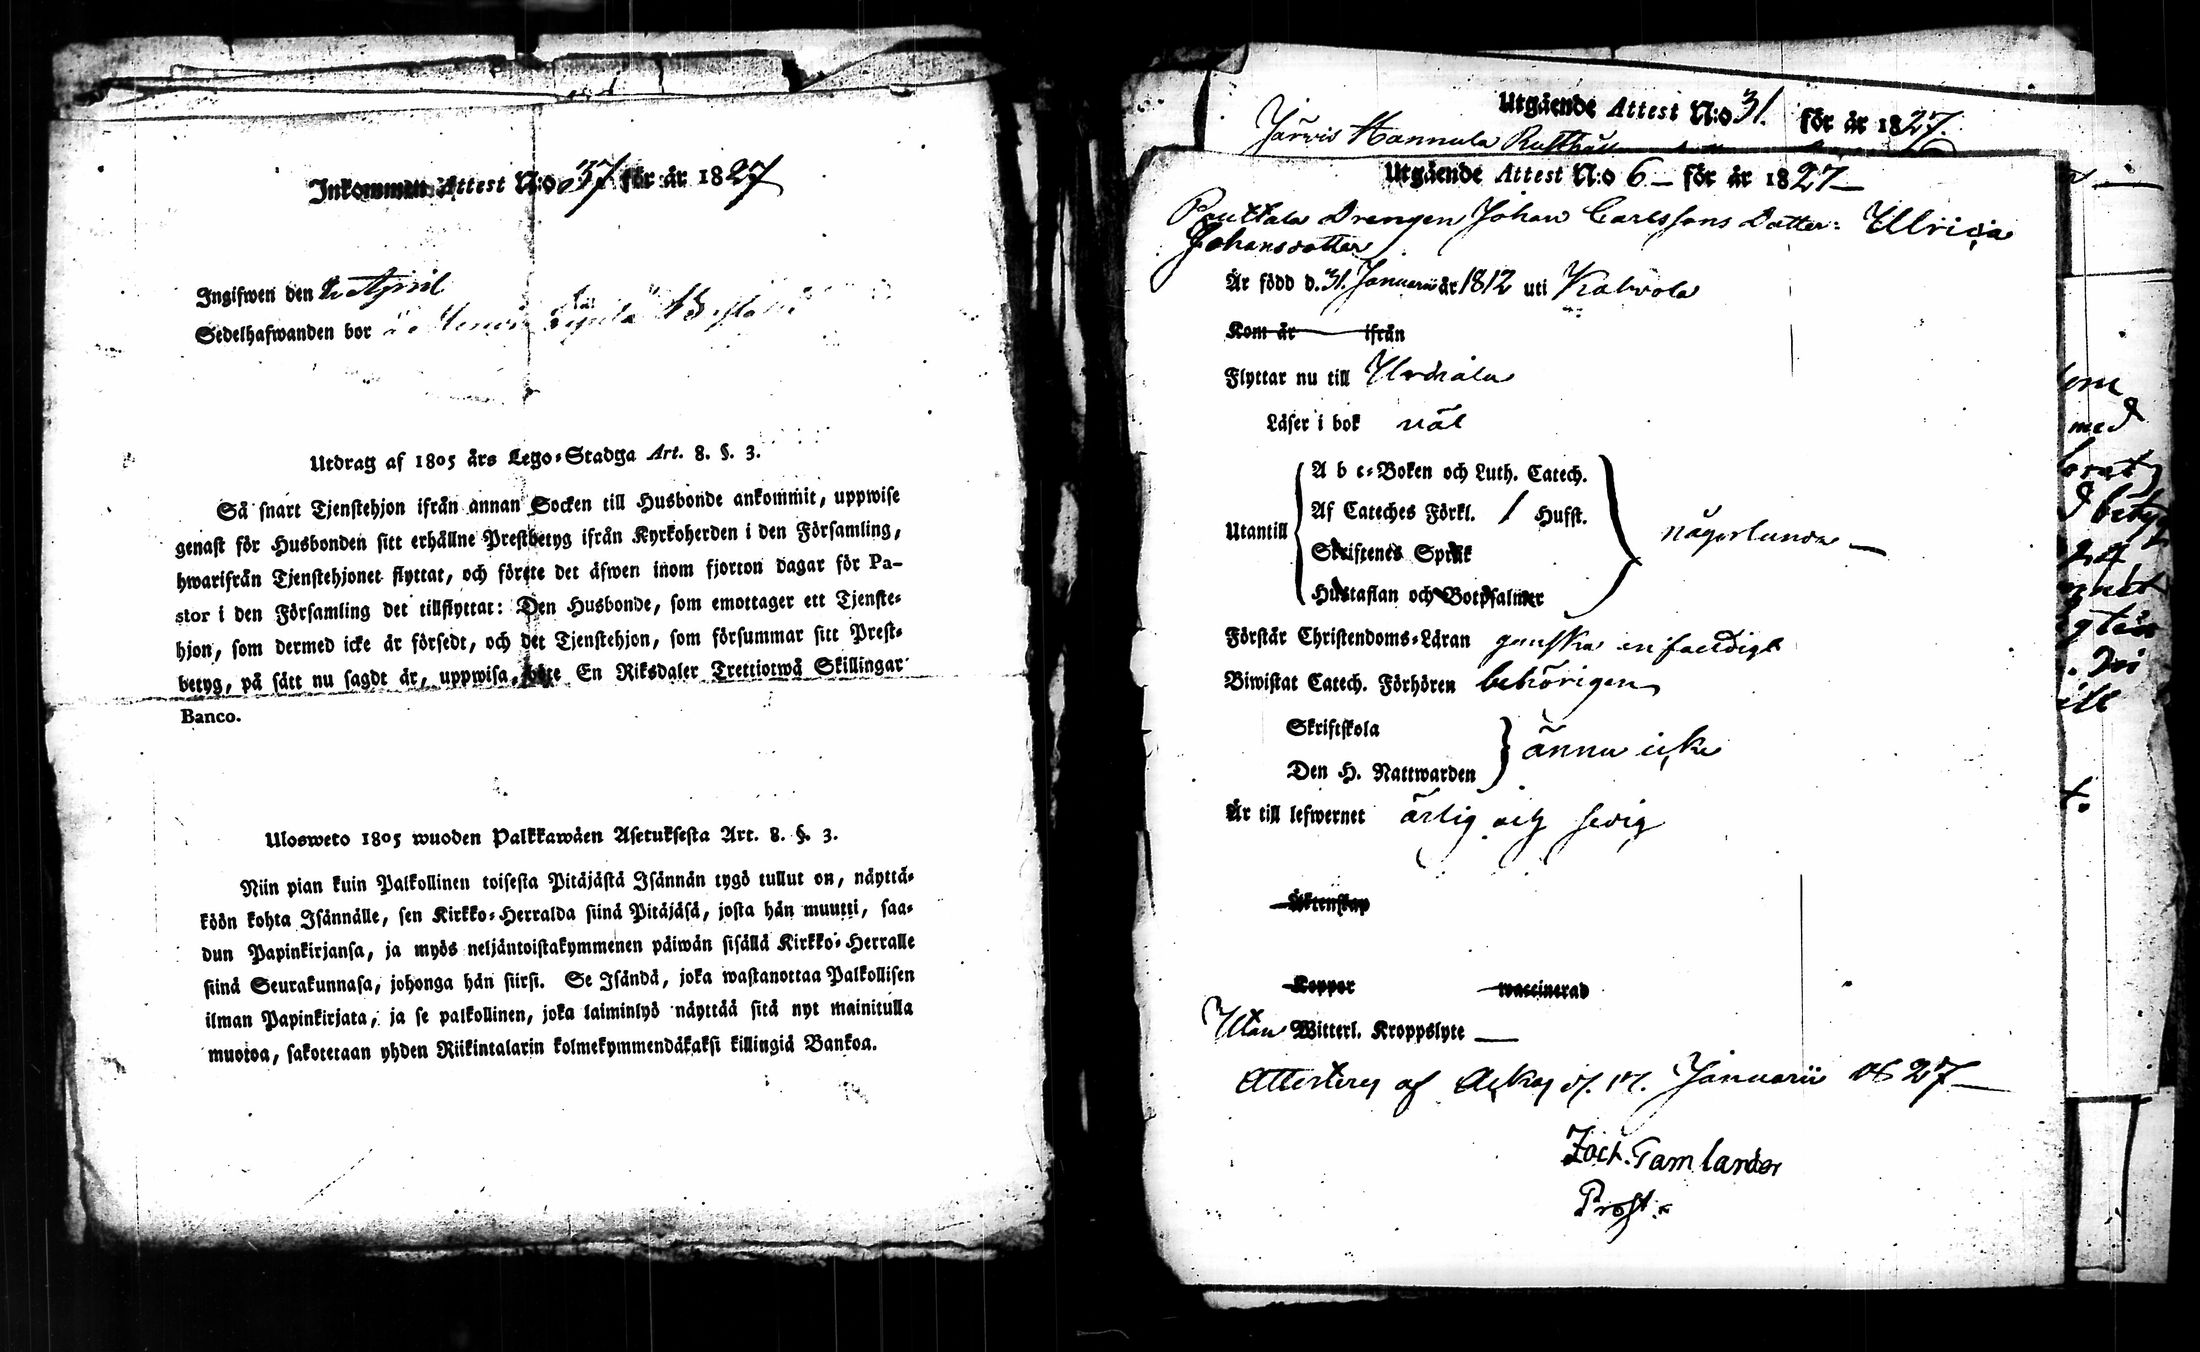 Inkommen Attest N:o 37 för år 1827
Ingifwen den 2 April
Sedelhafwanden bor
Utdrag af 1805 års Lego-Stadga Art. 8. §. 3.
Så snart Tjenstehjon ifrån annan Socken till Husbonde ankommit, uppwise
genast för Husbonden sitt erhållne Prestbetyg ifrån Kyrkoherden i den Församling,
hwarifrån Tjenstehjonet flyttat, och förete det äfwen inom fjorton dagar för Pa-
stor i den Församling det tillflyttat: Den Husbonde, som emottager ett Tjenste-
hjon, som dermed icke är försedt, och det Tjenstehjon, som försummar sitt Prest-
betyg, på sätt nu sagdt är, uppwisa, böte En Riksdaler Trettiotwå Skillingar
Banco.
Ulosweto 1805 wuoden Palkkawäen Asetuksesta Art. 8. §. 3.
Niin pian kuin Palkollinen toisesta Pitäjästä Isännän tygö tullut on, näyttä-
köön kohta Isännälle, sen Kirkko-Herralda siinä Pitäjäsä, josta hän muutti, saa-
dun Papinkirjansa, ja myös neljäntoistakymmenen päiwän sisällä Kirkko-Herralle
siinä Seurakunnasa, johonga hän siirsi. Se Isändä, joka wastanottaa Palkollisen
ilman Papinkirjata, ja se palkollinen, joka laiminlyö näyttää sitä nyt mainitulla
muotoa, sakotetaan yhden Riikintalarin kolmekymmendäkaksi killingiä Bankoa.
Utgående Attest N:o 31. för år 1827.
Järvis Hannula
Utgående Attest N:o 6 – för år 1827 –
Pouttala Drengen Johan Carlssons Dotter: Ulrica
Johansdotter
Är född d. 31. Januarii år 1812 uti Kalvola
Kom år ifrån
Flyttar nu till Urdiala
Läser i bok väl
A b c-Boken och Luth. Catech.
Af Cateches Förkl. / Husst.
Utantill någorlunda –
Skriftenes Språk
Hustaflan och Botpsalmer
Förstår Christendoms-Läran ganska enfaldigt
Biwistat Catech. Förhören behörigen
Skriftskola
ännu icke
Den H. Nattwarden
Är till lefwernet ärlig och sedig
Äktenskap
Koppor waccinerad
Utan Witterl. Kroppslyte –
Attesterey af Ackas d. 17. Januarii 1827 –
Zach. Gamlander
Prost.